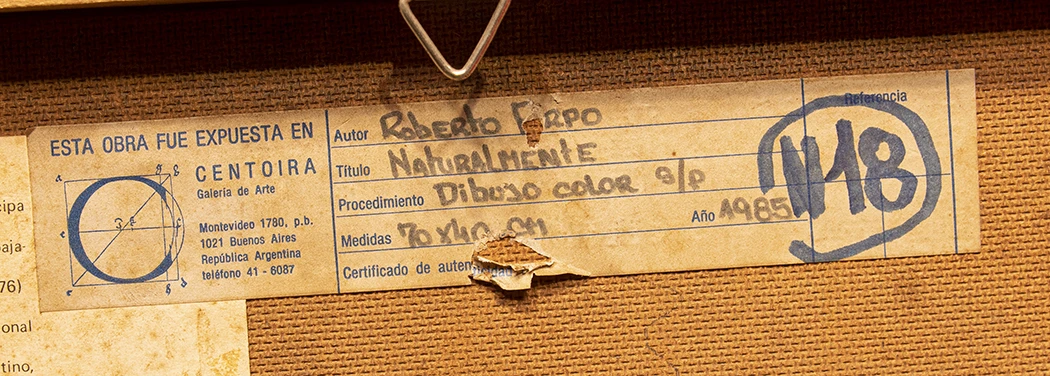 ESTA OBRA FUE EXPUESTA EN
CENTOIRA
Galería de Arte
Montevideo 1780, p.b.
1021 Buenos Aires
República Argentina
teléfono 41 - 6087
Autor Roberto
Título NATURALMENTE
Procedimiento Dibujo color s/p
Medidas 70x40 CM
Año 1985
Certificado de
Referencia
N18
cipa
baja-
76)
onal
tino,